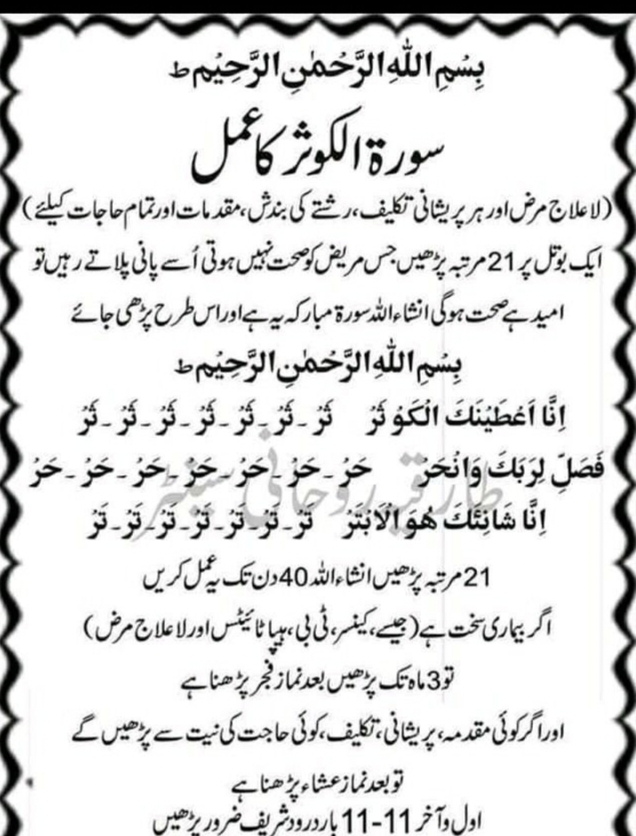 بِسْمِ اللهِ الرَّحْمٰنِ الرَّحِيْمِ ط
سورۃ الکوثر کا عمل
(لاعلاج مرض اور ہر پریشانی تکلیف، رشتے کی بندش، مقدمات اور تمام حاجات کیلئے)
ایک بوتل پر 21 مرتبہ پڑھیں جس مریض کو صحت نہیں ہوتی اُسے پانی پلاتے رہیں تو
امید ہے صحت ہوگی انشاءاللہ سورۃ مبارکہ یہ ہے اور اس طرح پڑھی جائے
بِسْمِ اللهِ الرَّحْمٰنِ الرَّحِيْمِ ط
اِنَّا اَعْطَيْنٰكَ الْكَوْثَرُ ثَرُ ۔ ثَرُ ۔ ثَرُ ۔ ثَرُ ۔ ثَرُ ۔ ثَرُ ۔ ثَرُ
فَصَلِّ لِرَبِّكَ وَانْحَرْ حَرْ ۔ حَرْ ۔ حَرْ ۔ حَرْ ۔ حَرْ ۔ حَرْ ۔ حَرْ
اِنَّا شَانِئَكَ هُوَ الْاَبْتَرُ تَرُ ۔ تَرُ ۔ تَرُ ۔ تَرُ ۔ تَرُ ۔ تَرُ ۔ تَرُ
طارق روحانی سینٹر
21 مرتبہ پڑھیں انشاءاللہ 40 دن تک یہ عمل کریں
اگر بیماری سخت ہے (جیسے، کینسر، ٹی بی، ہیپاٹائیٹس اور لاعلاج مرض)
تو 3 ماہ تک پڑھیں بعد نماز فجر پڑھنا ہے
اور اگر کوئی مقدمہ، پریشانی، تکلیف، کوئی حاجت کی نیت سے پڑھیں گے
تو بعد نماز عشاء پڑھنا ہے
اول و آخر 11-11 بار درود شریف ضرور پڑھیں